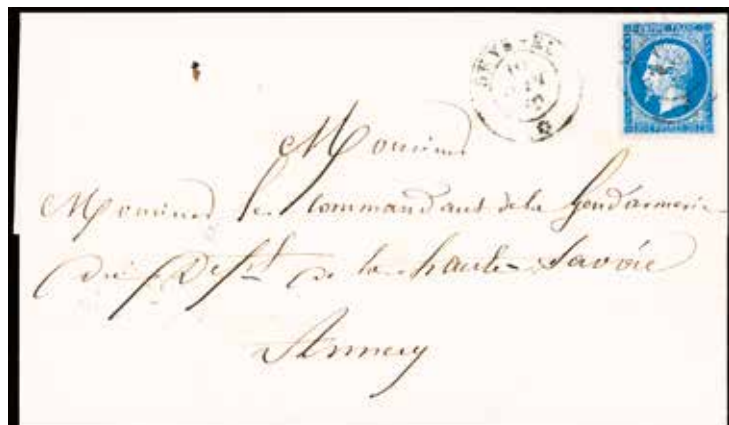 EMPIRE FRANC
Monsieur
Monsieur le Commandant de la Gendarmerie
du Dept de la haute Savoie
Annecy